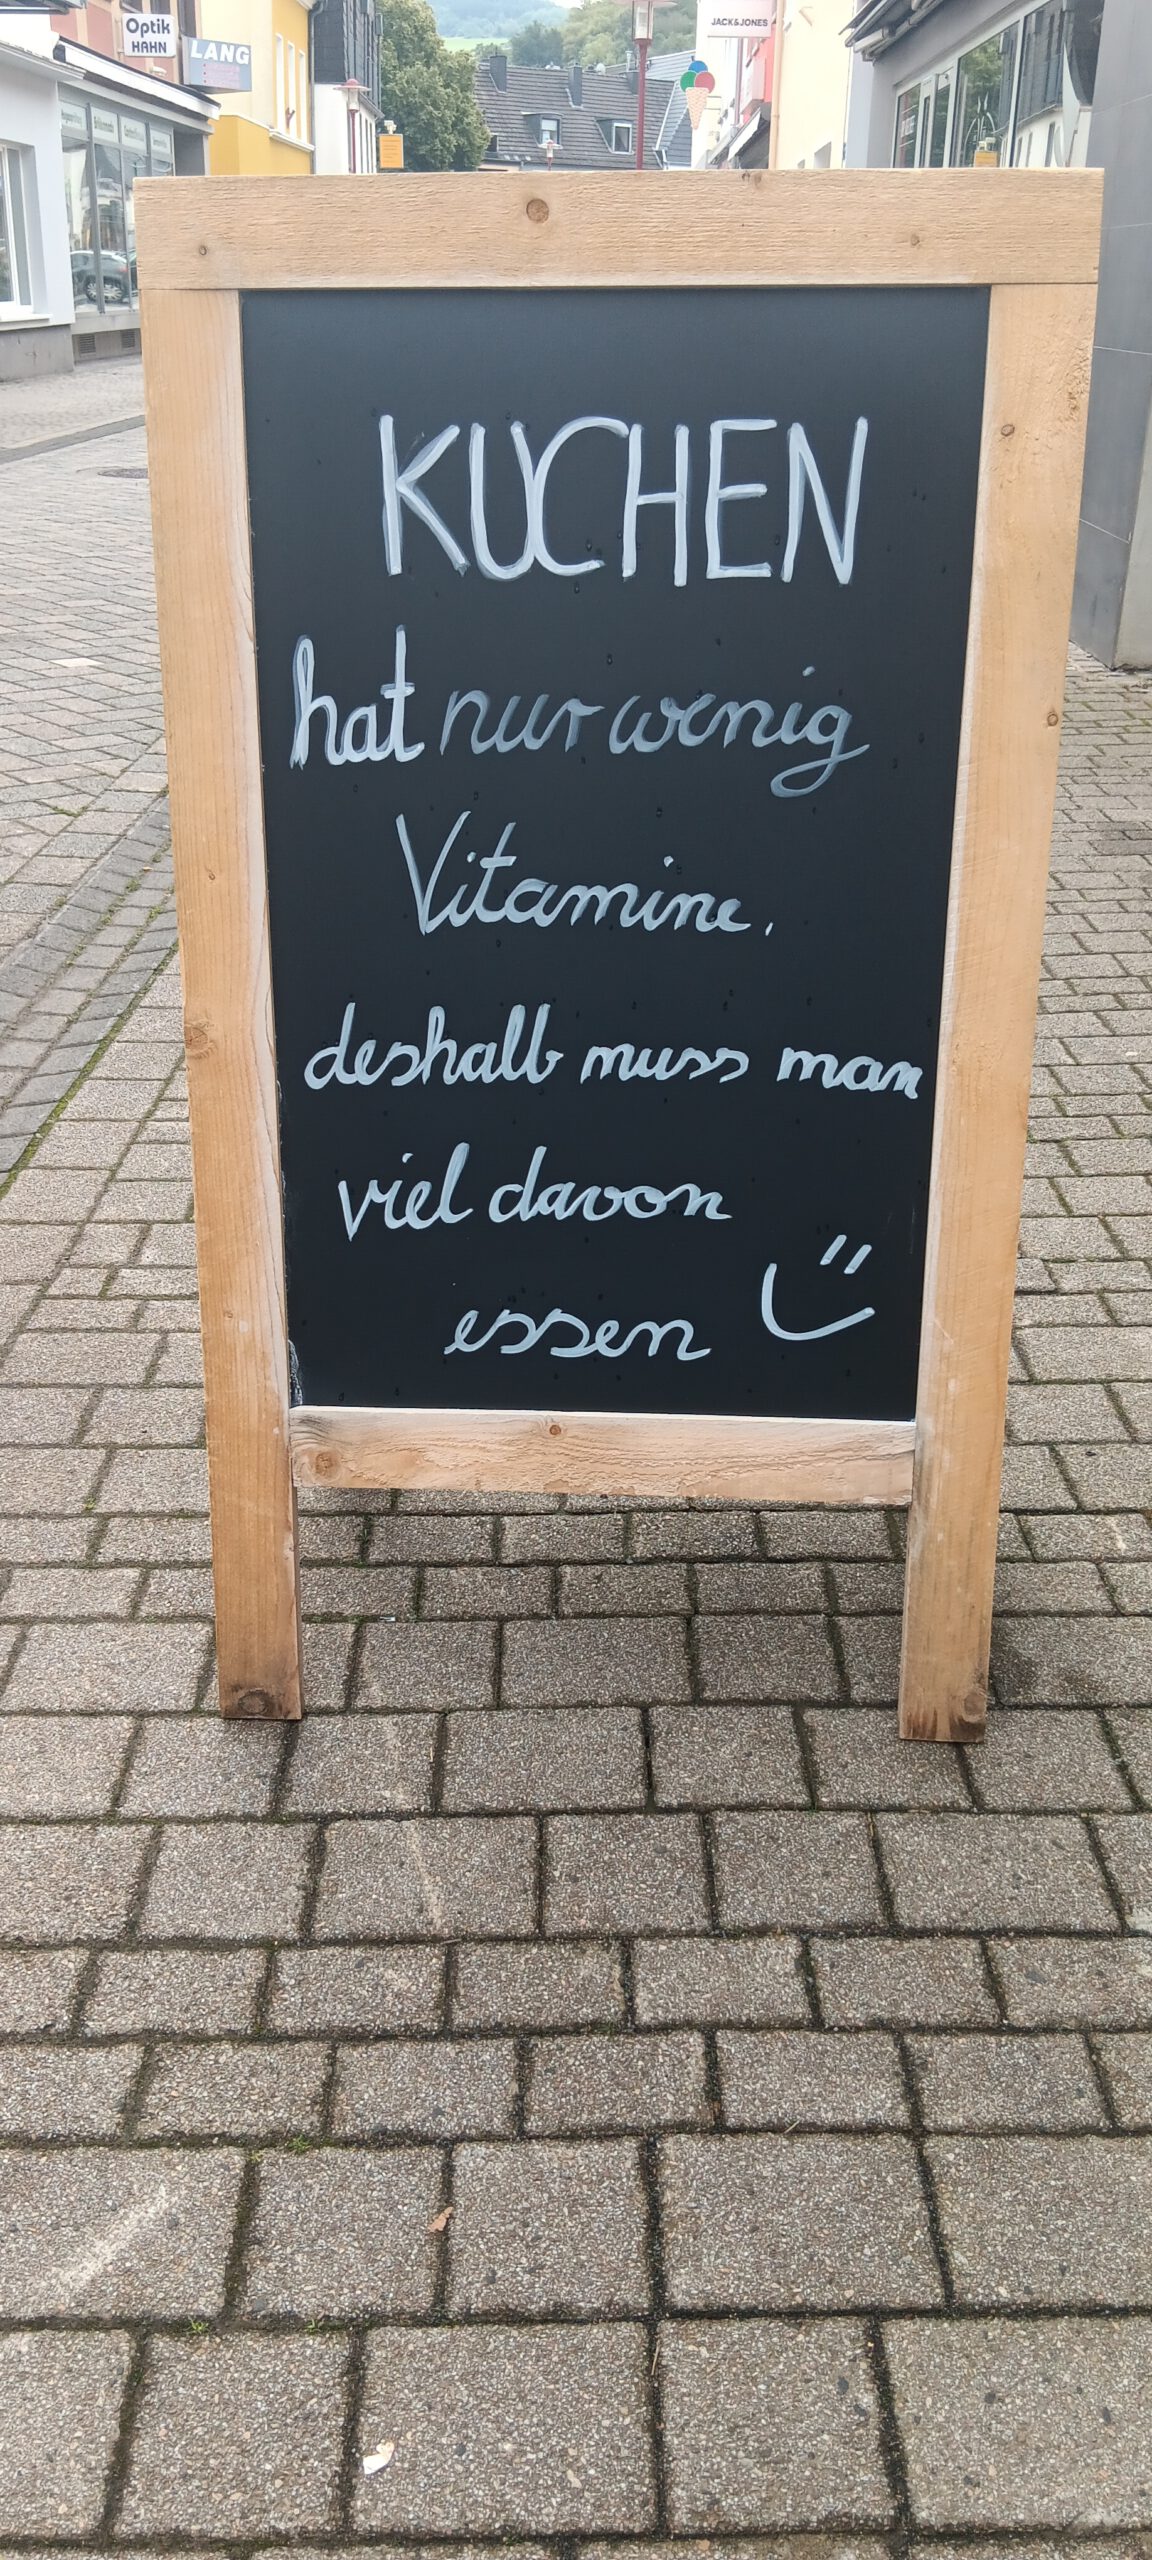 Optik
HAHN
LANG
JACK&JONES
KUCHEN
hat nur wenig
Vitamine,
deshalb muss man
viel davon
essen